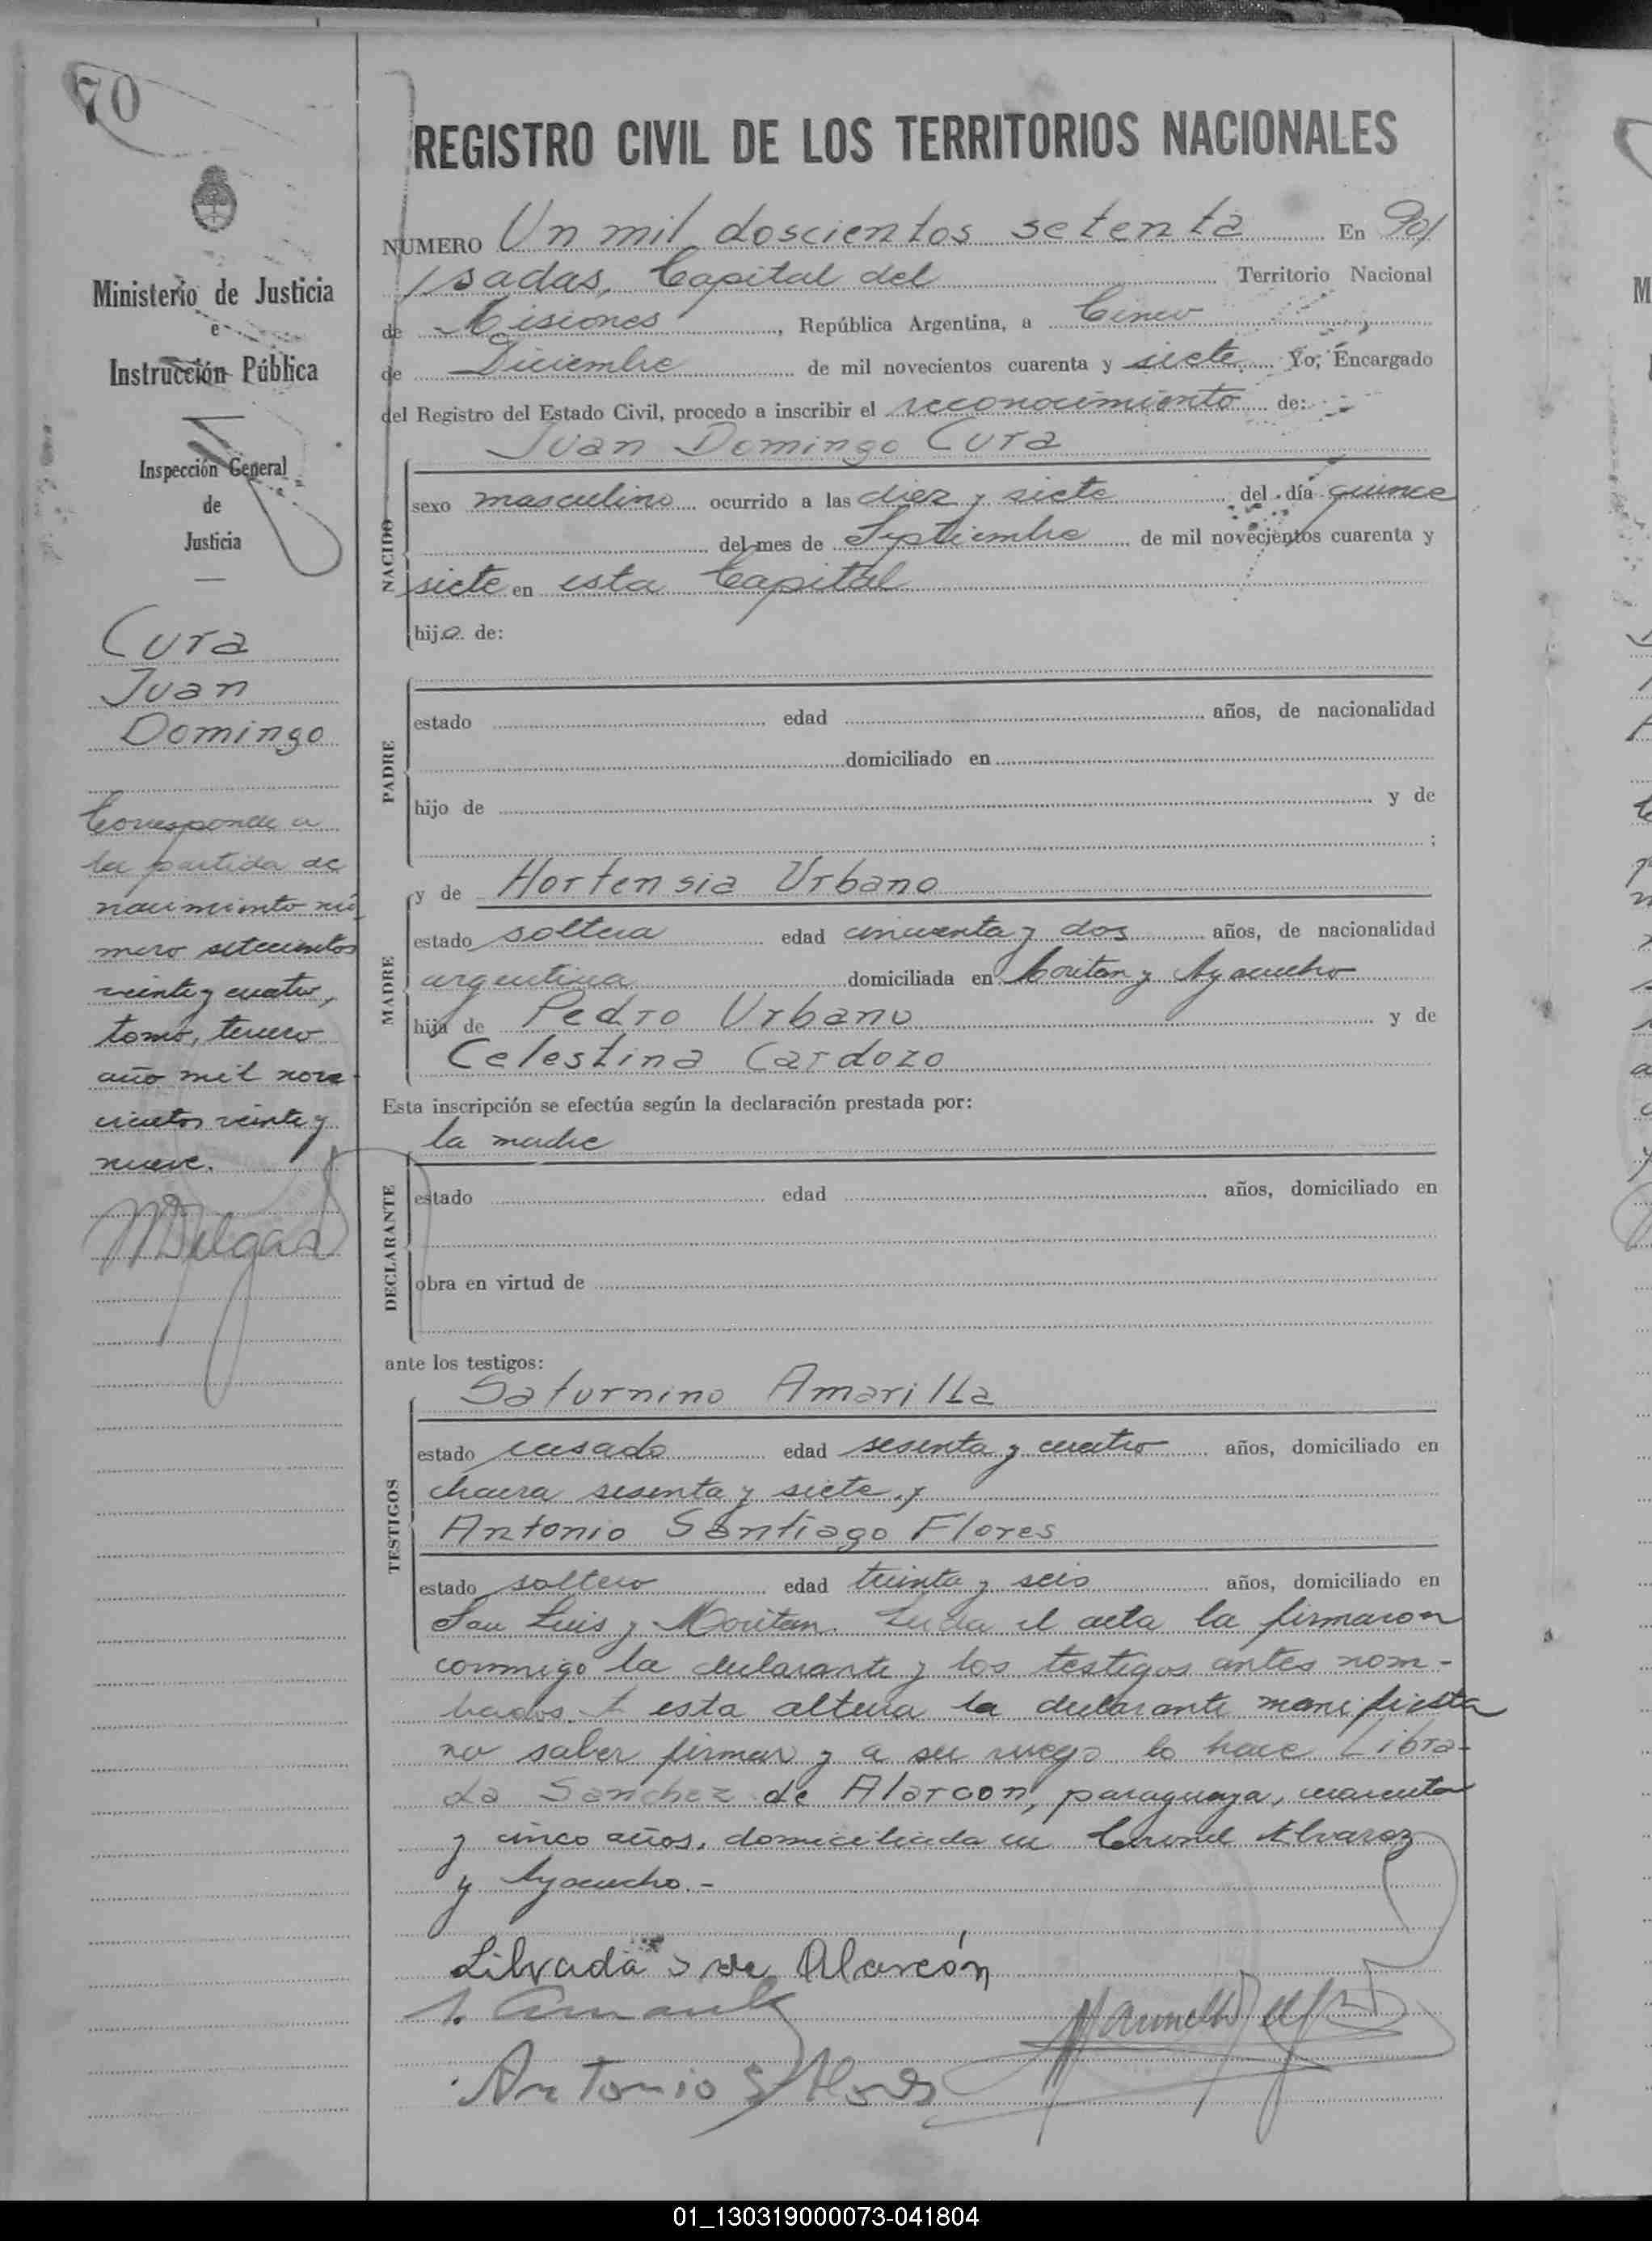 70
REGISTRO CIVIL DE LOS TERRITORIOS NACIONALES
NÚMERO Un mil doscientos setenta En Po/
/sadas, Capital del Territorio Nacional
de Misiones, República Argentina, a Cinco
de Diciembre de mil novecientos cuarenta y siete. Yo, Encargado
del Registro del Estado Civil, procedo a inscribir el reconocimiento de:
Juan Domingo Cura
NACIDO
sexo masculino ocurrido a las diez y siete del día quince
del mes de Septiembre de mil novecientos cuarenta y
siete en esta Capital
hijo de:
PADRE
estado edad años, de nacionalidad
domiciliado en
hijo de y de
;
MADRE
y de Hortensia Urbano
estado soltera edad cincuenta y dos años, de nacionalidad
argentina domiciliada en Moritan y Ayacucho
hija de Pedro Urbano y de
Celestina Cardozo
Esta inscripción se efectúa según la declaración prestada por:
la madre
DECLARANTE
estado edad años, domiciliado en
obra en virtud de
ante los testigos:
TESTIGOS
Saturnino Amarilla
estado casado edad sesenta y cuatro años, domiciliado en
chacra sesenta y siete y
Antonio Santiago Flores
estado soltero edad treinta y seis años, domiciliado en
San Luis y Moritan. Leída el acta la firmaron
conmigo la declarante y los testigos antes nom-
brados. A esta altura la declarante manifiesta
no saber firmar y a su ruego lo hace Libra-
da Sanchez de Alarcon, paraguaya, cuarenta
y cinco años, domiciliada en Coronel Alvarez
y Ayacucho.-
Librada S de Alarcón
S. Amarilla
Antonio S Flores
Ministerio de Justicia
e
Instrucción Pública
Inspección General
de
Justicia
Cura
Juan
Domingo
Corresponde a
la partida de
nacimiento nú
mero setecientos
veinte y cuatro,
tomo, tercero
año mil nove
cientos veinte y
nueve.
01_130319000073-041804